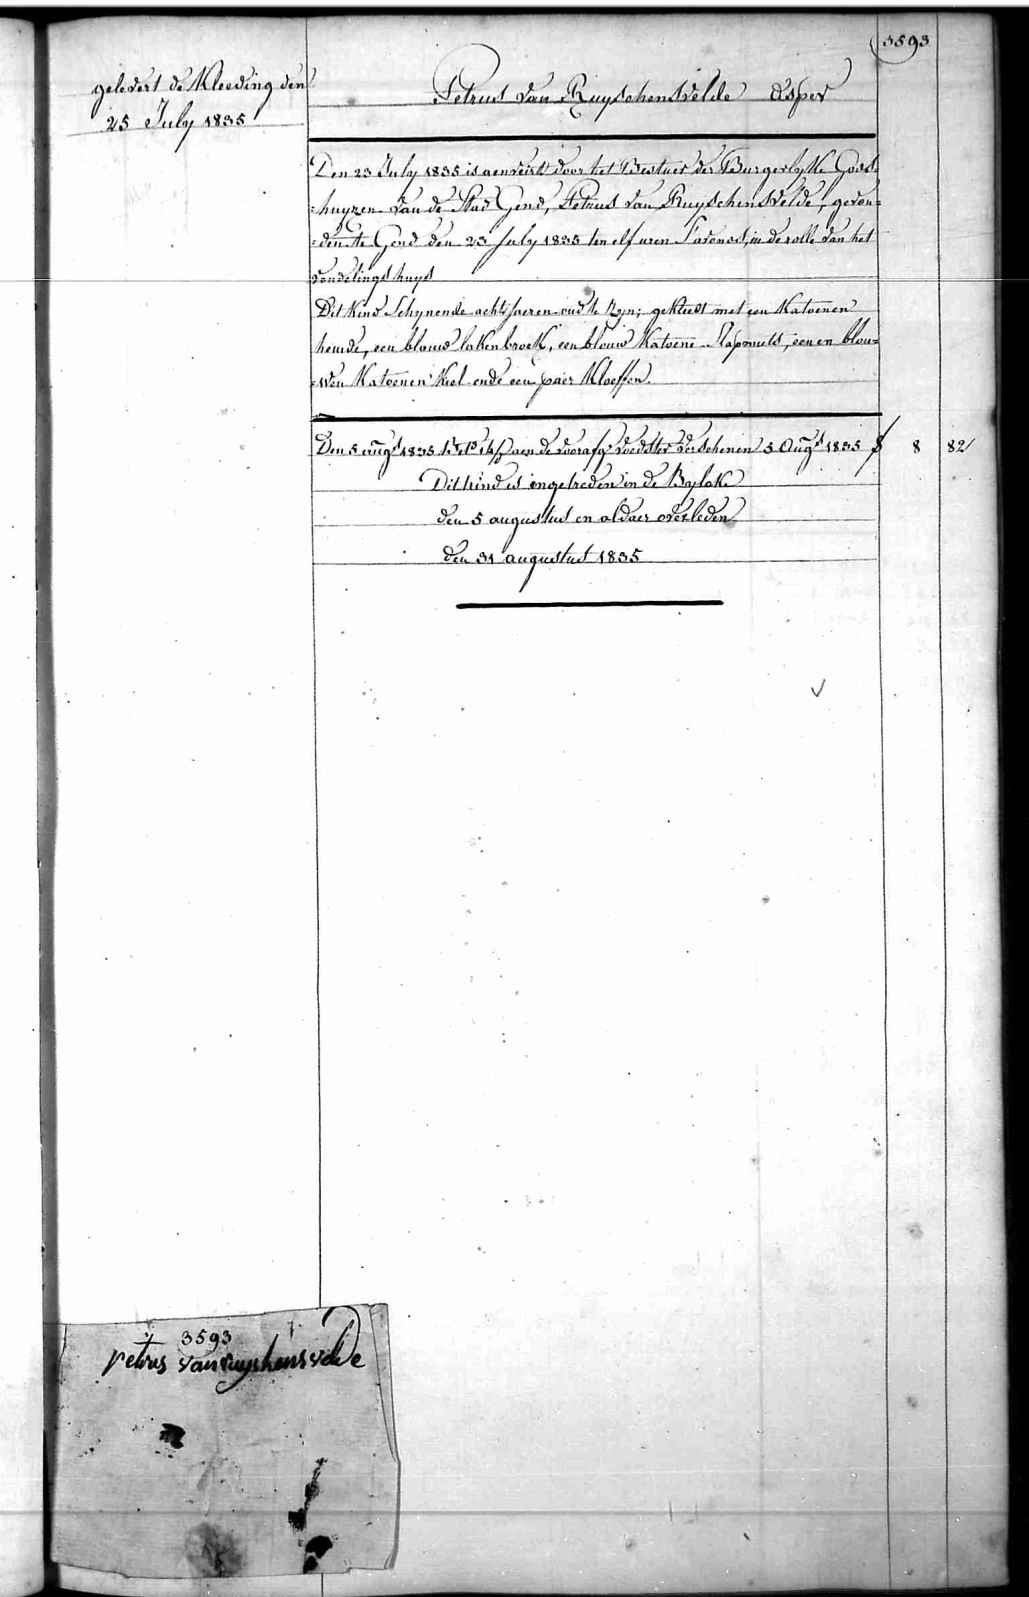 3593
gelevert de Kleeding den
25 July 1835
Petrus van Ruyschensvelde Asper
Den 23 July 1835 is aenveird door het Bestuer der Burgerlyke Gods-
=huyzen van de Stad Gend, Petrus van Ruyschensvelde, gevon=
=den te Gend den 23 July 1835 ten elf uren S'avonds, in de rolle van het
vondelings huys
Dit Kind Schynende acht jaeren oud te zyn; gekleed met een Katoenen
hemde, een blauw laken broek, een blauw Katoene Slapmuts, eenen blau=
=wen Katoenen Kiel ende een paer Kloeffen.
Den 5 augs 1835 aen de voorafg voedster verschenen 5 Augs 1835 8 82
Dit kind is ingetreden in de Byloke
den 5 augustus en aldaer overleden
den 31 augustus 1835
3593
petrus vanruyshensvelde